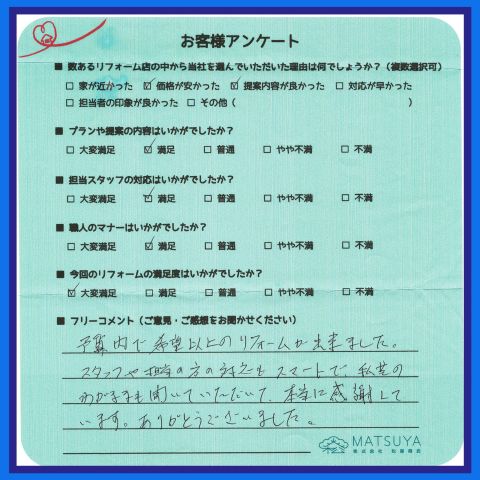 お客様アンケート
■ 数あるリフォーム店の中から当社を選んでいただいた理由は何でしょうか?（複数選択可）
□ 家が近かった ☑ 価格が安かった ☑ 提案内容が良かった □ 対応が早かった
□ 担当者の印象が良かった □ その他（ ）
■ プランや提案の内容はいかがでしたか?
□ 大変満足 ☑ 満足 □ 普通 □ やや不満 □ 不満
■ 担当スタッフの対応はいかがでしたか?
□ 大変満足 ☑ 満足 □ 普通 □ やや不満 □ 不満
■ 職人のマナーはいかがでしたか?
□ 大変満足 ☑ 満足 □ 普通 □ やや不満 □ 不満
■ 今回のリフォームの満足度はいかがでしたか?
☑ 大変満足 □ 満足 □ 普通 □ やや不満 □ 不満
■ フリーコメント（ご意見・ご感想をお聞かせください）
予算内で希望以上のリフォームが出来ました。
スタッフや担当の方の対応もスマートで、私共の
わがままも聞いていただいて、本当に感謝して
います。ありがとうございました。
MATSUYA
株式会社 松屋商会